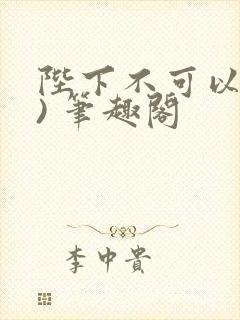 陛下不可以
) 筆趣閣
李中貴